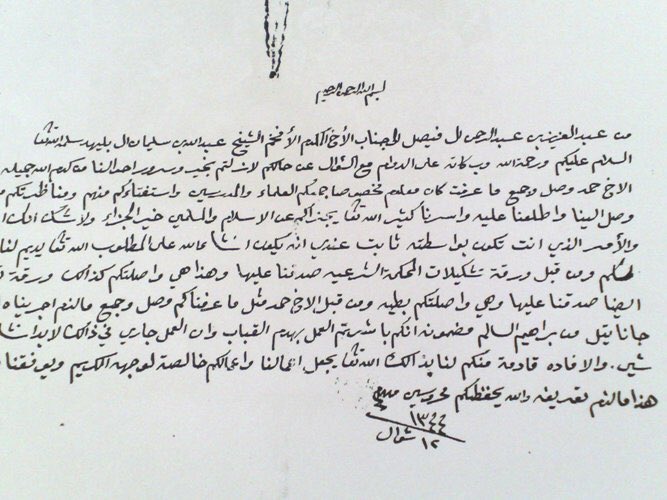 بسم الله الرحمن الرحيم
من عبد العزيز بن عبد الرحمن ال فيصل الى جناب الأخ المكرم الأفخم الشيخ عبد الله بن سليمان ال بليهد سلمه الله تعا
السلام عليكم ورحمة الله وبركاته على الدوام مع السؤال عن حالكم لا زلتم بخير وسرور احوالنا من كرم الله جميله
الاخ حمد وصل وجميع ما عرفت كان معلوم مخصوصا جمعكم العلماء والمدرسين واستفتاءكم منهم ومناظرتكم
وصل الينا واطلعنا عليه واسرنا كثير الله تعا يجزاكم عن الاسلام والمسلمين خير الجزاء ولا شك
والأمر الذي انت تكون بواسطته ثابت عندي انه يكون انشا الله على المطلوب الله تعا يديم لنا
ومن قبل ورقة تشكيلات المحكمة الشرعيه صدقنا عليها وهذا هي واصلتكم كذالك ورقة
ايضا صدقنا عليها وهي واصلتكم بطيه ومن قبل الاخ حمد مثل ما عرفناكم وصل وجميع مالزم اجريناه
جانا من براهيم السالم مضمونه انكم باشرتم العمل بهدم القباب وان العمل جاري في ذالك لابد انشا
والافاده قادمة منكم لنا بذالك الله تعا يجعل اعمالنا واعمالكم خالصة لوجهه الكريم ويوفقنا
هذا مالزم تعريفه والله يحفظكم محروسين
١٣٤٤
١٢ شوال